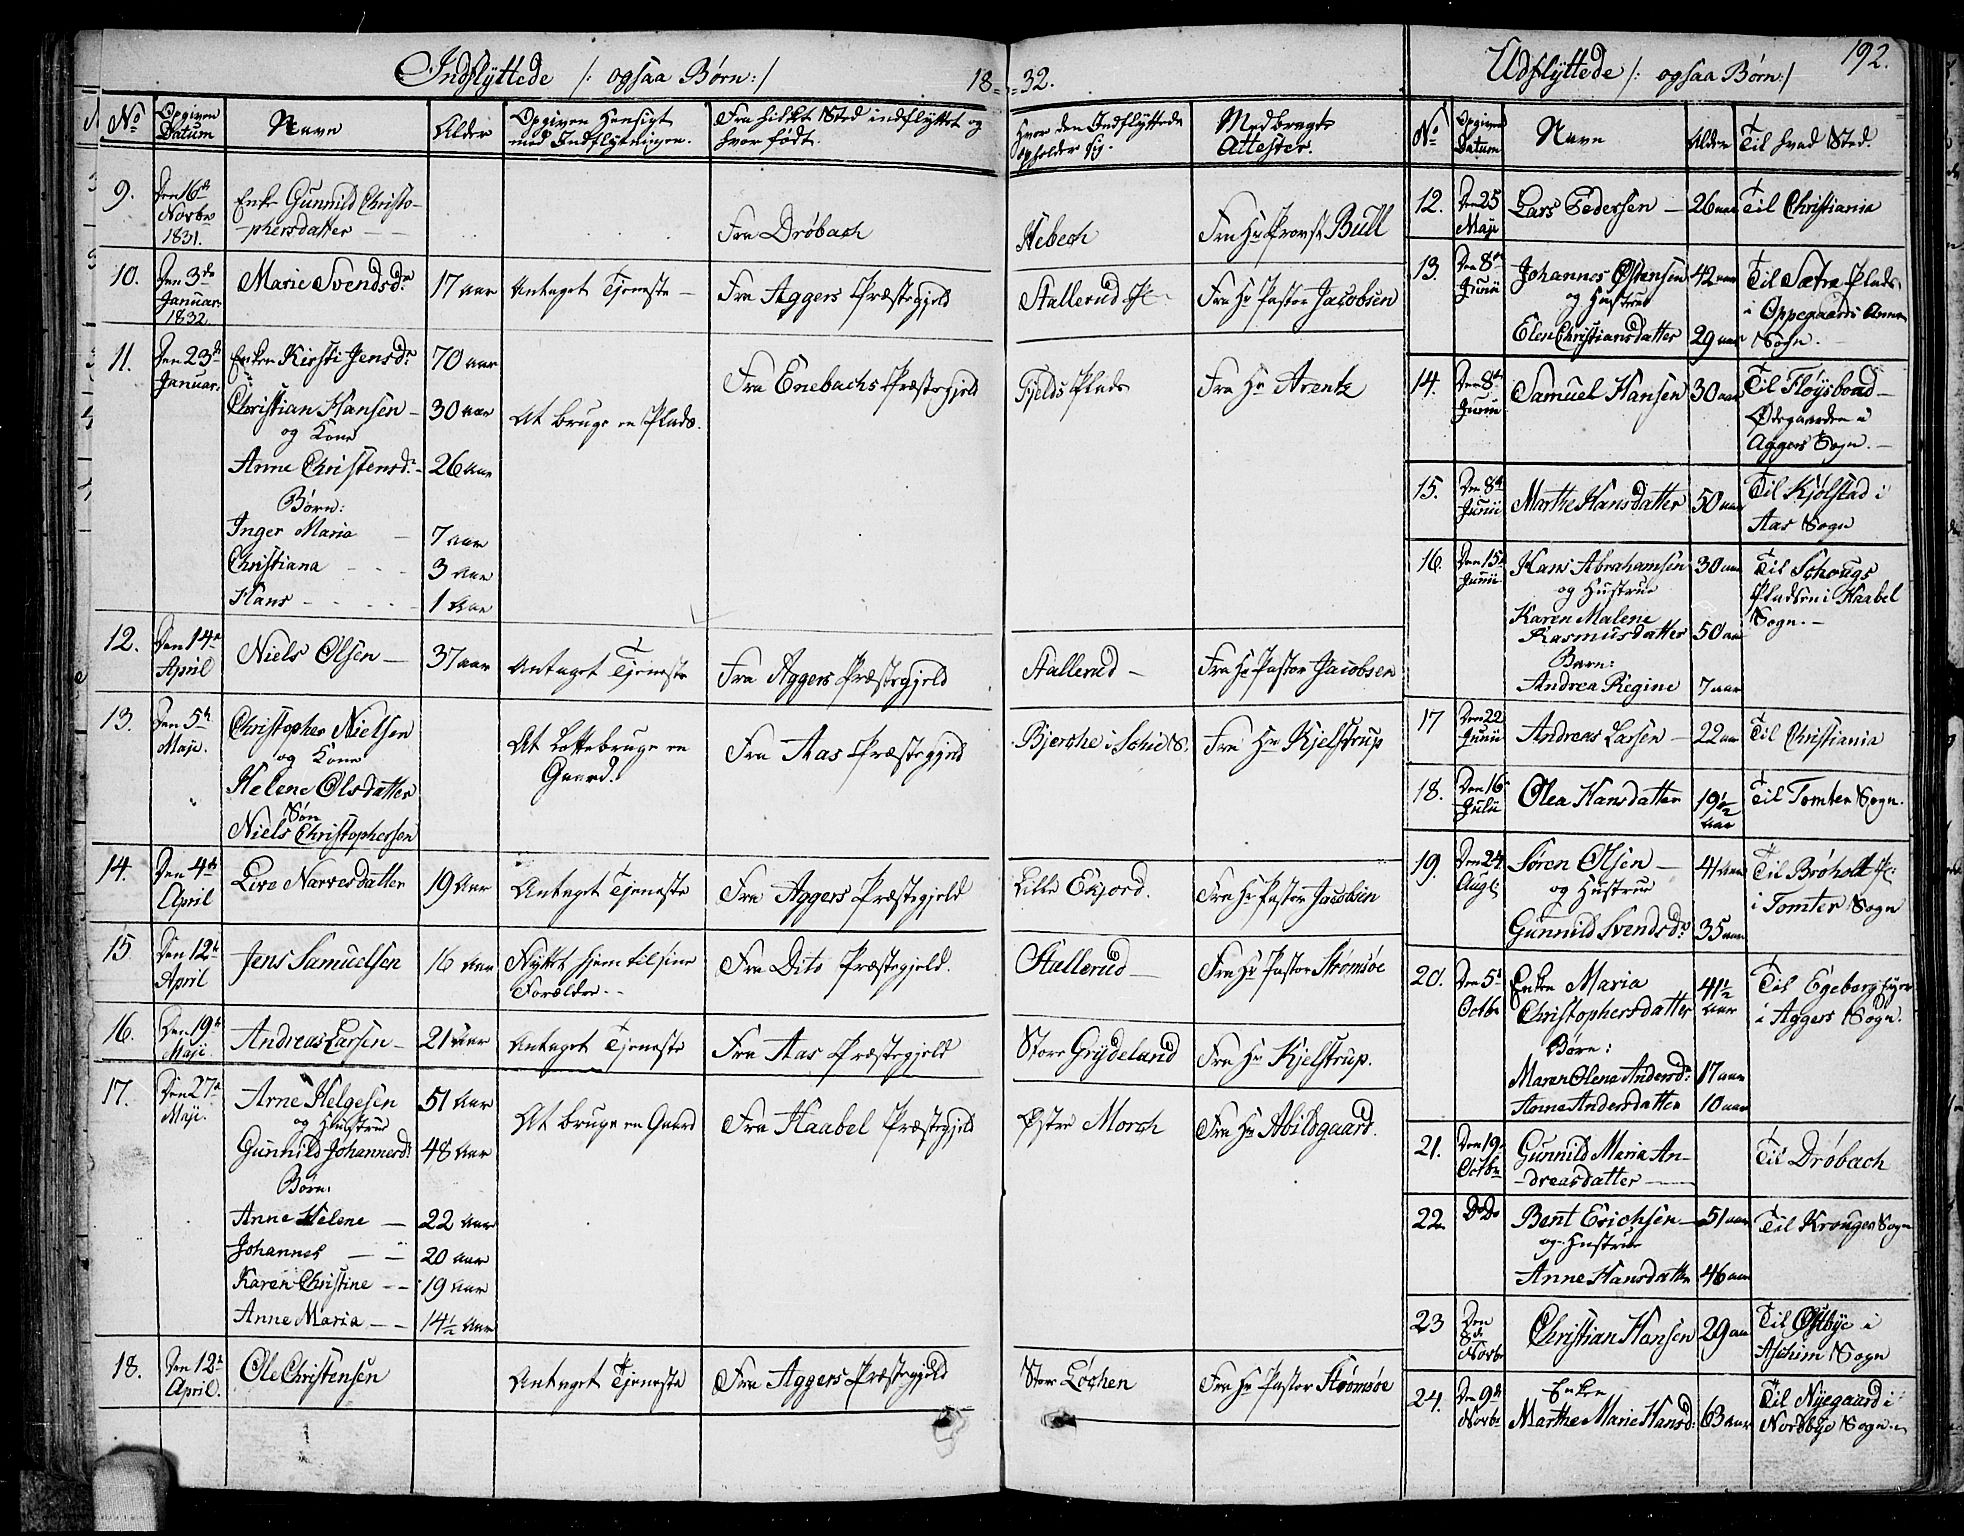 Indflyttede /: ogsaa Børn :/ 18=
=32.
Udflyttede /: ogsaa Børn :/ 192.
No
Opgiven Datum
Navn
Alder
Opgiven Hensigt
med Indflytningen.
Fra hvilket Sted indflyttet og
hvor født.
Hvor den Indflyttede
opholder sig.
Medbragte
Attester.
9. Den 16de Novbr 1831. Enke Gunnild Christo-
phersdatter — Fra Drøbach Nebech Fra Hr Provst Bull
10. Den 3de Januar 1832. Marie Svendsdr 17 aar Antaget Tjeneste — Fra Aggers Præstegjeld Stallerud Fra Hr Pastor Jacobsen
11. Den 23de Januar. Enken Kirsti Jensdr 70 aar Fra Enebachs Præstegjeld Fjelds Plads Fra Hr Arentz
Christian Hansen — 30 aar At bruge en Plads.
og Kone
Anne Christensdr — 26 aar
Børn:
Inger Maria — 7 aar
Christiana — 3 aar
Hans — 1 aar
12. Den 14de April Niels Olsen — 37 aar Antaget Tjeneste Fra Aggers Præstegjeld Stallerud — Fra Hr Pastor Jacobsen
13. Den 5te Maji. Christopher Nielsen At bruge en Fra Aas Præstegjeld Bjerche i Schie S. Fra Hr Kjelstrup
og Kone Gaard.
Helene Olsdatter
Søn
Niels Christophersen
14. Den 4de April Live Narvesdatter 19 aar Antaget Tjeneste Fra Aggers Præstegjeld Lille Ekjord. Fra Hr Pastor Jacobsen
15 Den 12te April Jens Samuelsen 16 aar Flyttet hjem til sine Fra Dito Præstegjeld. Stallerud — Fra Hr Pastor Strømsøe
Forældre. —
16. Den 19de Maji. Andreas Larsen — 21 aar Antaget Tjeneste Fra Aas Præstegjeld Store Grydeland Fra Hr Kjelstrup.
17. Den 27de Maji. Arne Helgesen 51 aar At bruge en Gaard Fra Haabel Præstegjeld Østre Morch Fra Hr Abildgaard.
og Hustrue
Gunnild Johannesdr 48 aar
Børn:
Anne Helene — 22 aar
Johannes — 20 aar
Karen Christine — 19 aar
Anne Maria — 14½ aar
18. Den 12te April. Ole Christensen Antaget Tjeneste Fra Aggers Præstegjeld Store Løchen Fra Hr Pastor Strømsøe
No
Opgiven Datum
Navn
Alder
Til hvad Sted.
12. Den 25 Maji Lars Pedersen — 26 aar Til Christiania
13. Den 8de Junii Johannes Østensen 42 aar Til Sætre Plads
og Hustrue i Oppegaards Annex
Elen Christiansdatter 29 aar Sogn. —
14. Den 8de Junii Samuel Hansen 30 aar Til Fløysbond —
Ødegaarden i
Aggers Sogn. —
15. Den 8de Junii Marthe Hansdatter 50 aar Til Kjølstad i
Aas Sogn
16. Den 15de Junii Hans Abrahamsen 30 aar Til Schougs
og Hustrue Pladsen i Haabel
Karen Malene Sogn. —
Rasmusdatter 50 aar
Barn:
Andrea Regine 7 aar
17 Den 22 Junii Andreas Larsen — 22 aar Til Christiania
18. Den 16 Julii Olea Hansdatter 19½ aar Til Tomter Sogn.
19. Den 24 Augt: Søren Olsen — 41 aar Til Brøholt
og Hustrue i Tomter Sogn
Gunnild Svendsdr 35 aar
20. Den 5te Octbr Enken Maria 41½ aar Til Egeberg
Christophersdatter i Aggers Sogn.
Børn:
Maren Olene Andersdr 17 aar
Anne Andersdatter 10 aar
21. Den 19 Octbr Gunnild Maria An- Til Drøbach
dreasdatter —
22. Do Do Bent Erichsen — 51 aar Til Krouger Sogn
og Hustrue
Anne Hansdatter 46 aar
23 Den 8de Novbr Christian Hansen 29 aar Til Østbye i
Aschim Sogn
24. Den 9de Novbr Enken Til Nyegaard i
Marthe Marie Hansd: 63 aar Nordbye Sogn. —